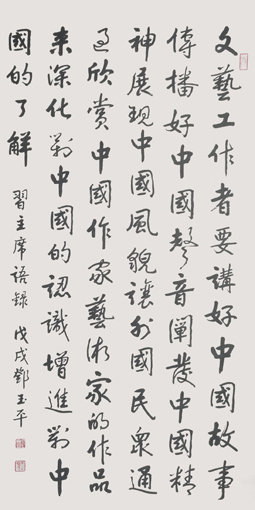 文藝工作者要講好中國故事
傳播好中國聲音闡發中國精
神展現中國風貌讓外國民衆通
過欣賞中國作家藝術家的作品
来深化對中國的認識增進對中
國的了解
習主席語錄 戊戌鄧玉平